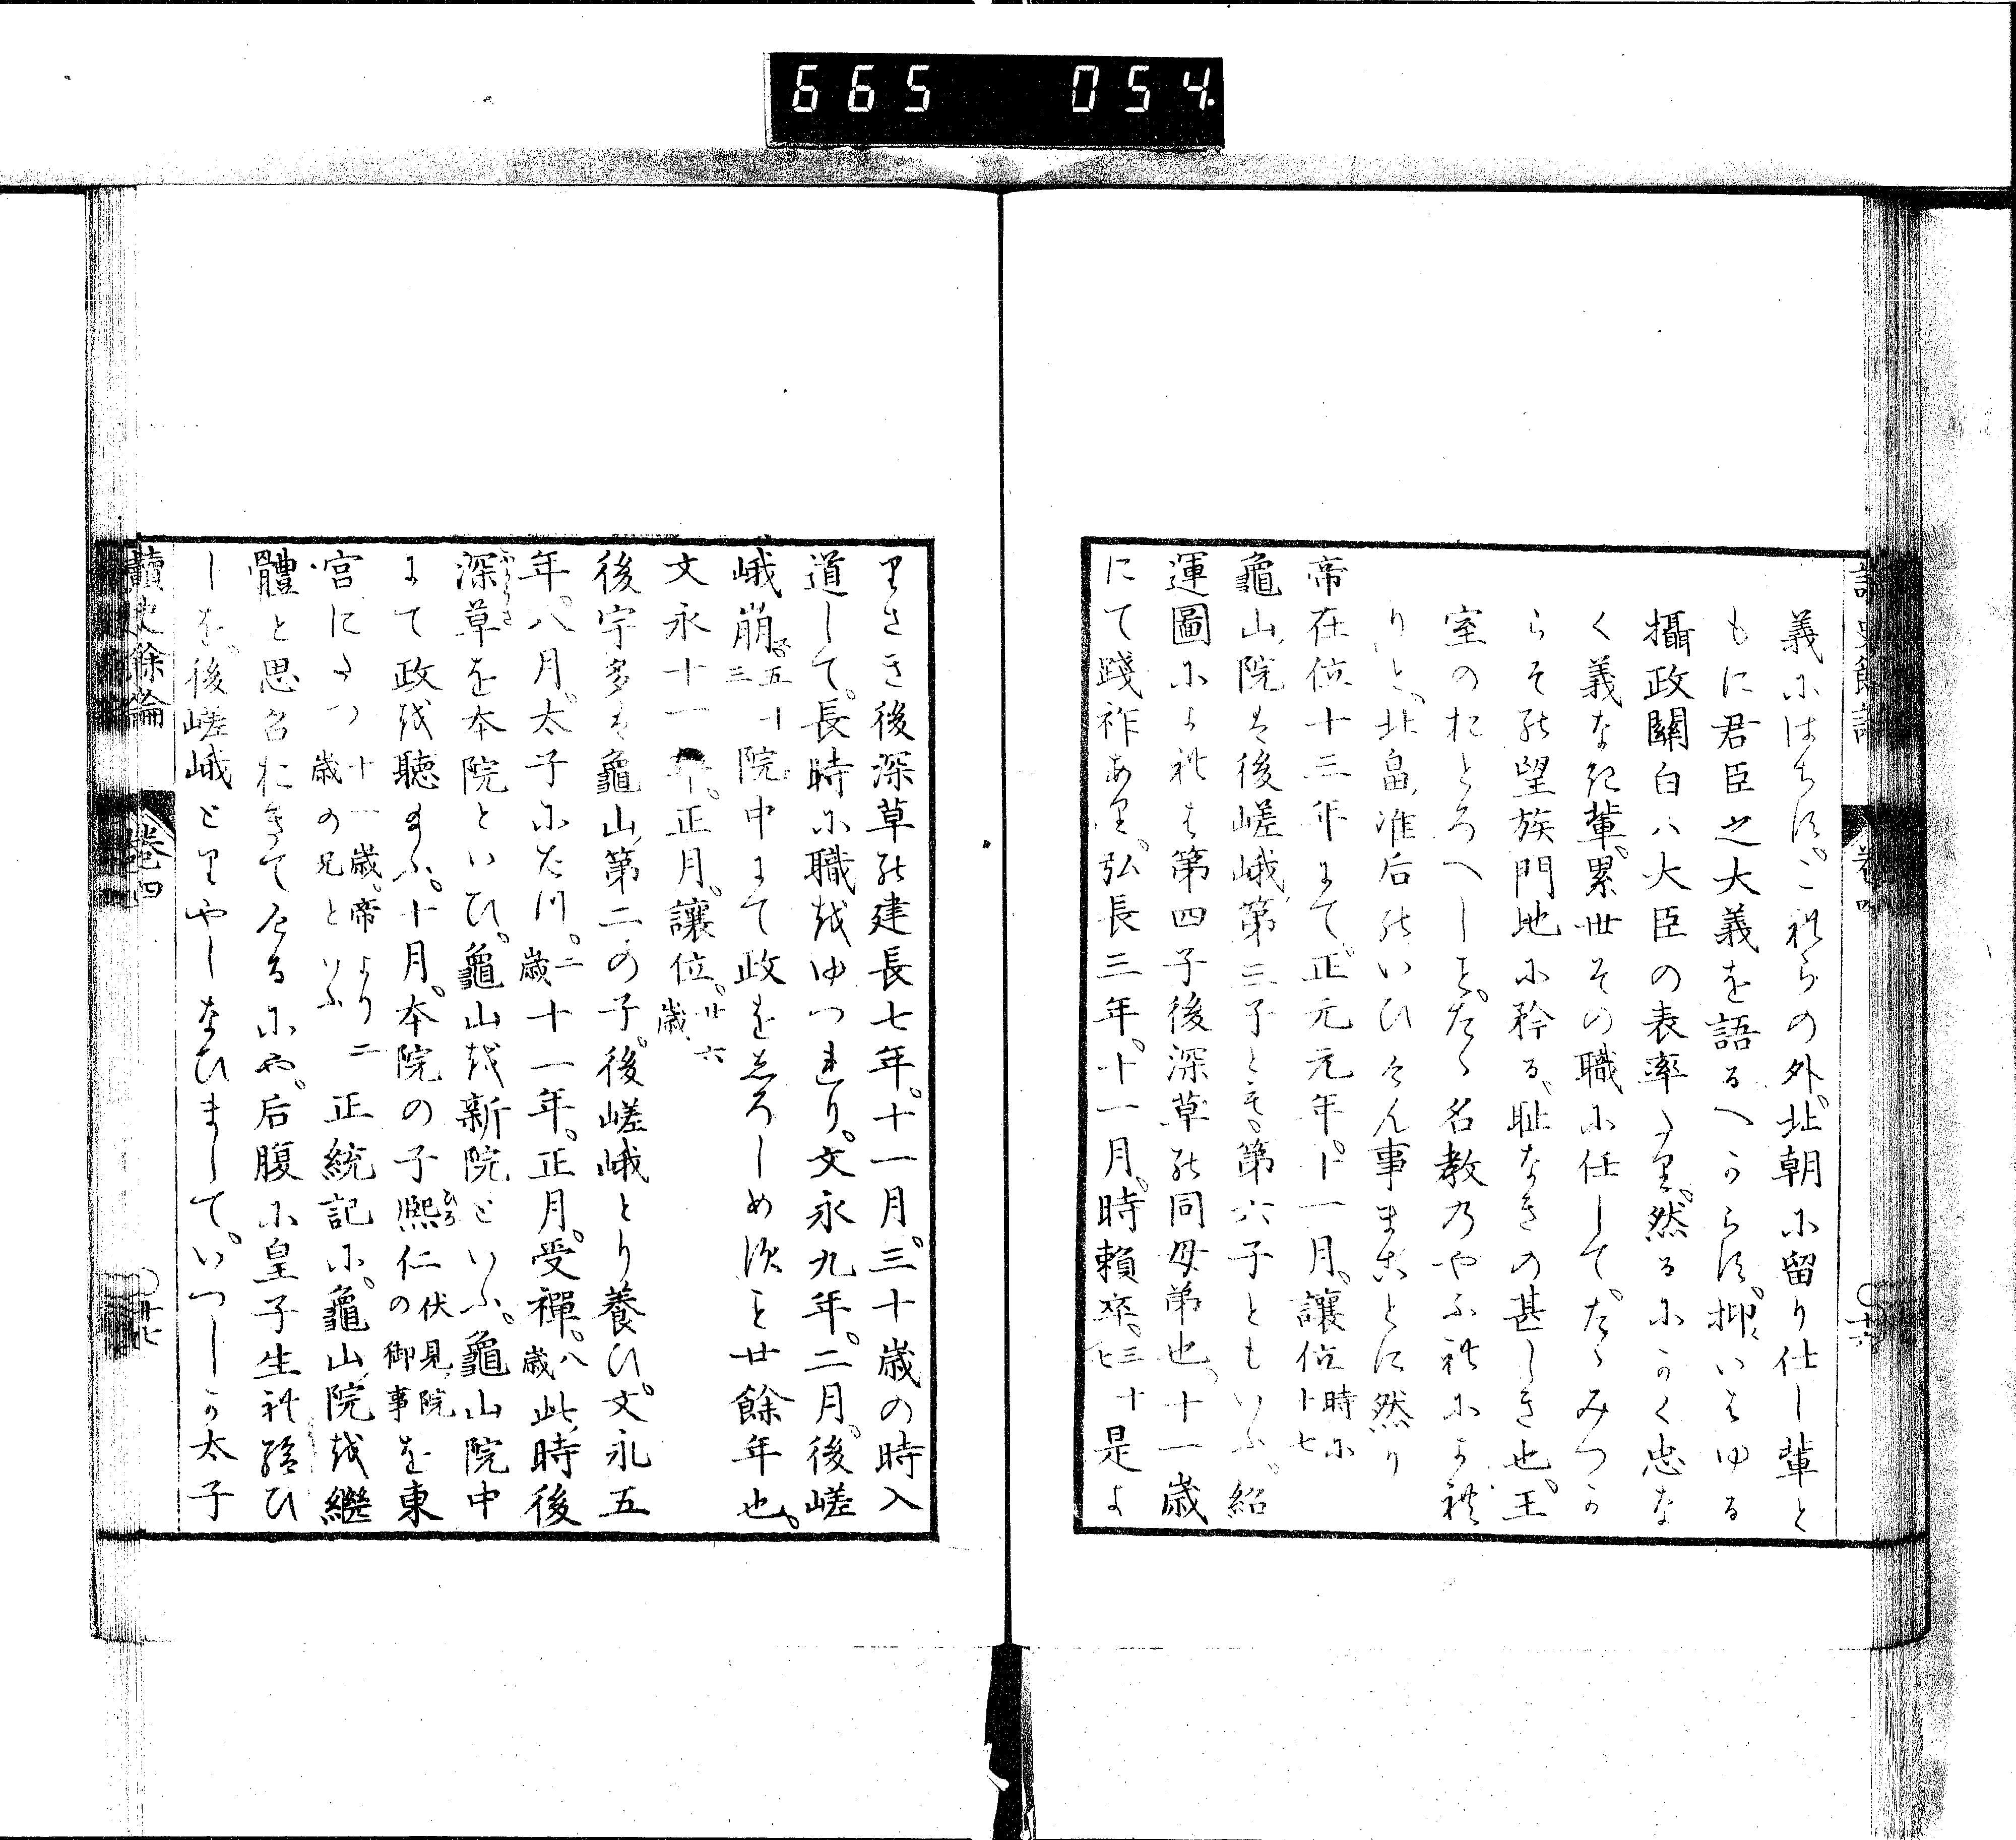 665 054.
義にはちす。これらの外。北朝に留り仕し輩と
もに君臣之大義を語るへからす。抑いはゆる
攝政關白ハ大臣の表率たり。然るにかく忠な
く義なき輩。累世その職に任して。たゝみつか
らその望族門地に矜る。耻なきの甚しき也。王
室のおとろへしも。たゝ名教のやふれによれ
りと。北畠准后のいひけん事まことに然り
帝在位十三年にて。正元元年。十一月。讓位時に十七
龜山院は後嵯峨第三子とも。第六子ともいふ。紹
運圖によれは第四子後深草の同母弟也。十一歳
にて踐祚あり。弘長三年。十一月。時頼卒。三十七是よ
りさき後深草の建長七年。十一月。三十歳の時入
道して。長時に職をゆつれり。文永九年。二月。後嵯
峨崩。五十三院中にて政をきこしめすこと廿餘年也。
文永十一年。正月。讓位。廿六歳
後宇多は龜山第二の子。後嵯峨とり養ひ。文永五
年。八月。太子にたつ。二歳十一年。正月。受禪。八歳此時後
深草を本院といひ。龜山を新院といふ。龜山院中
にて政を聽給ふ。十月。本院の子熙仁伏見院の御事を東
宮にたつ十一歳。帝より二歳の兄といふ正統記に。龜山院を繼
體と思召おきてけるにや。后腹に皇子生れ給ひ
しを。後嵯峨とりやしなひまして。いつしか太子
讀史餘論 卷四 〇廿七